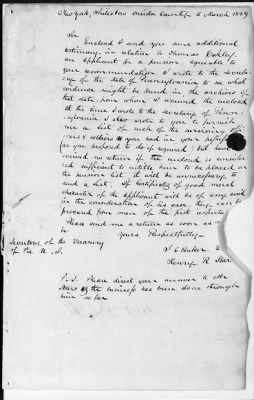 New York, Whitesboro Oneida County 6 March 1829
Sir
Enclosed I send you some additional
testimony in relation to Thomas Oakley
an applicant for a pension, agreeable to
your recommendation I wrote to the Secreta
ry of the State of Pennsylvania to see what
evidence might be found in the archives of
that state, from whom I received the enclosed
at the time I wrote to the Secretary of Penn-
sylvania I also wrote to you to furnish
me a list of such of the surviving offi-
cers & others as you had in your
(as you proposed to do if required) but have re-
ceived no return if the enclosed is consider
ed sufficient to entitle him to be placed on
the pension list it will be unnecessary to
send a list. If Certificates of good moral
character of the applicant will be of any avail
in the consideration of his case they can be
procured from men of the first
Please send me a return as soon as
be Yours Respectfully
Secretary of the Treasury
of the U. S.
S C Baker &
Henry R
P. S. Please direct your answer to Mr
as the business has been done through
him so far